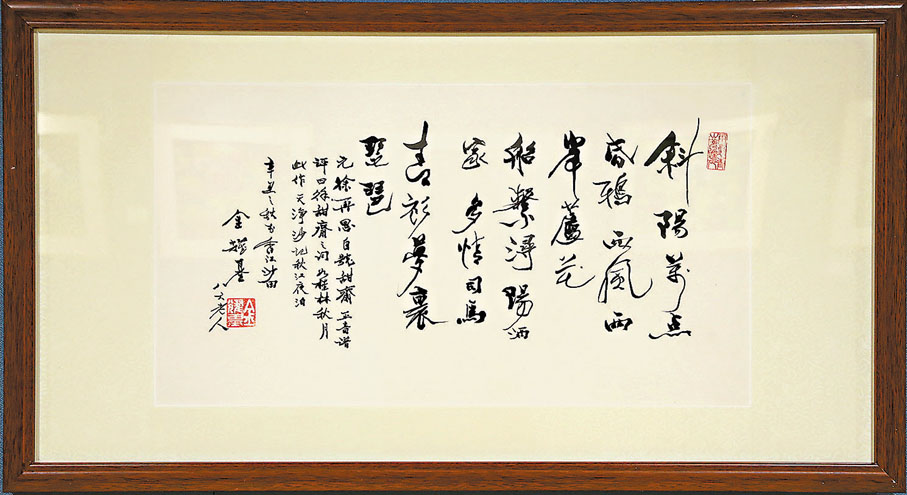 斜陽萬点
昏鴉西風兩
岸蘆花
船繫潯陽酒
家多情司馬
青衫夢裏
琵琶
元徐再思自號甜齋正音譜
評曰徐甜齋之詞如桂林秋月
此作天淨沙記秋江夜泊
辛丑之秋於香江沙田
金耀基
八六老人